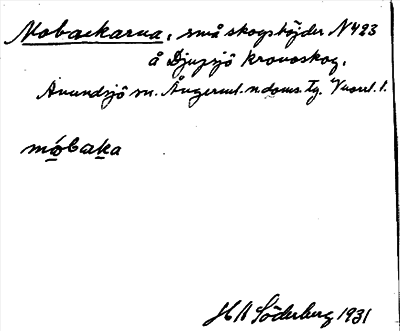 Mobackarna, små skogshöjder N 423
å Djupsjö kronoskog,
Anundsjö sn. Ångerml. n doms. Tg.
móbaka
H A Söderberg 1931